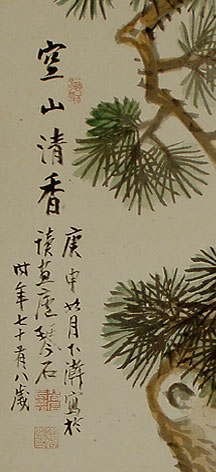 空山清香
庚申花月下澣寫於
讀畫廬琴石
時年七十有八歲